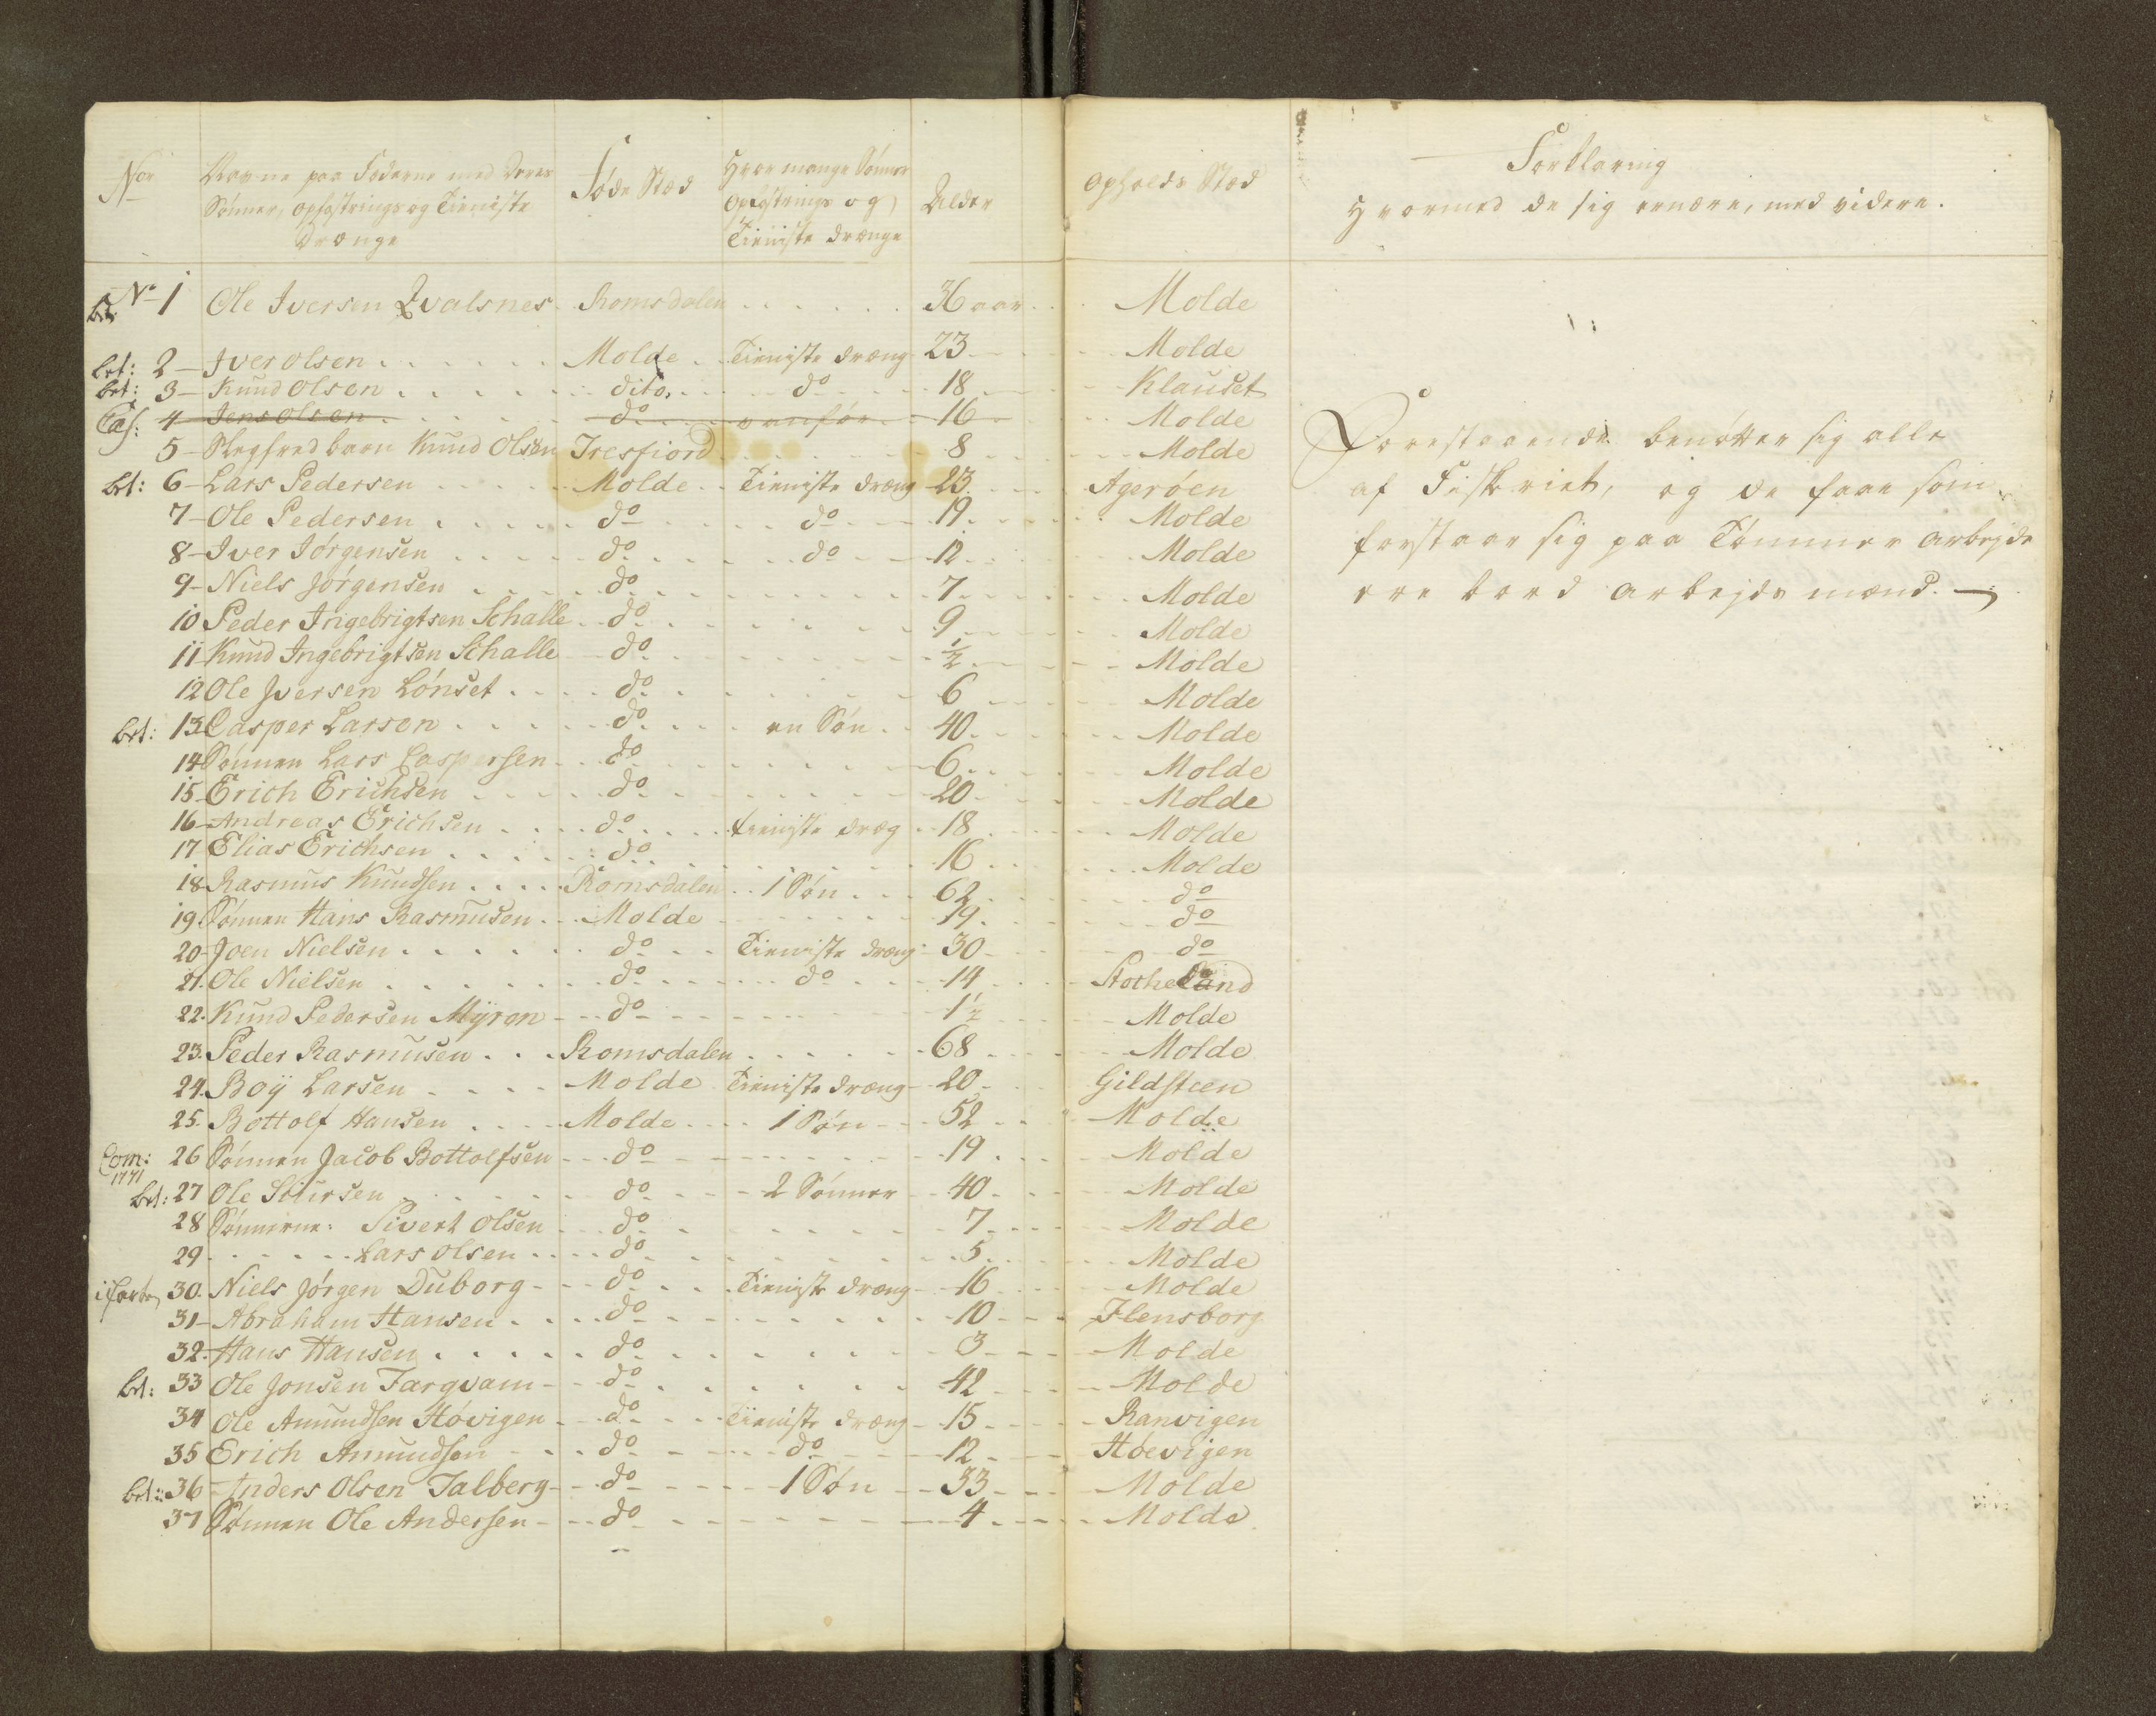 Nor
Navne paa Fæderne med deres
Sønner, opfostrings og Tieniste
Drænge
Føde Stæd
Hvor mange Sønner
Opfostrings og
Tieniste drænge
Alder
Opholds Stæd
Forklaring
Hvormed de sig ernære, med videre.
No 1 Ole Iversen Qvalsnes Romsdalen 36 aar Molde
brt: 2 Iver Olsen Molde Tieniste dræng 23 Molde
brt: 3 Knud Olsen dito do 18 Klauset
Cas: 4 Jens Olsen do vanför 16 Molde
5 Slegfred barn Knud Olsen Tresfiord 8 Molde
brt: 6 Lars Pedersen Molde Tieniste dræng 23 Agerøen
7 Ole Pedersen do do 19 Molde
8 Iver Jørgensen do do 12 Molde
9 Niels Jørgensen do 7 Molde
10 Peder Ingebrigtsen Schalle do 9 Molde
11 Knud Ingebrigtsen Schalle do 1/2 Molde
12 Ole Iversen Lønset do 6 Molde
brt: 13 Casper Larsen do en Søn 40 Molde
14 Sønnen Lars Caspersen do 6 Molde
15 Erich Erichsen do 20 Molde
16 Andreas Erichsen do tieniste dræg 18 Molde
17 Elias Erichsen do 16 Molde
18 Rasmus Knudsen Romsdalen 1 Søn 62 do
19 Sønnen Hans Rasmusen Molde 19 do
20 Joen Nielsen do Tieniste dræng 30 do
21. Ole Nielsen do do 14
22. Knud Pedersen Myran do 1 1/2 Molde
23. Peder Rasmusen Romsdalen 68 Molde
24. Boÿ Larsen Molde Tieniste dræng 20 Gildsteen
25. Bottolf Hansen Molde 1 Søn 52 Molde
Com: 1771 26 Sønnen Jacob Bottolfsen do 19 Molde
brt: 27 Ole Siursen do 2 Sønner 40 Molde
28 Sønnerne: Sivert Olsen do 7 Molde
29 Lars Olsen do 5 Molde
30. Niels Jørgen Duborg do Tieniste dræng 16 Molde
31 Abraham Hansen do 10 Flensborg
32. Hans Hansen do 3 Molde
brt: 33 Ole Jonsen Targvam do 42 Molde
34 Ole Amundsen Høvigen do Tieniste dræng 15 Ranvigen
35 Erich Amundsen do do 12 Høevigen
brt: 36 Anders Olsen Talberg do 1 Søn 33 Molde
37 Sønnen Ole Andersen do 4 Molde
Forestaaende benøtter sig alle
af Fiskeriet, og de faae som
forstaar sig paa Tømmer arbejde
ere bord arbejds mænd.